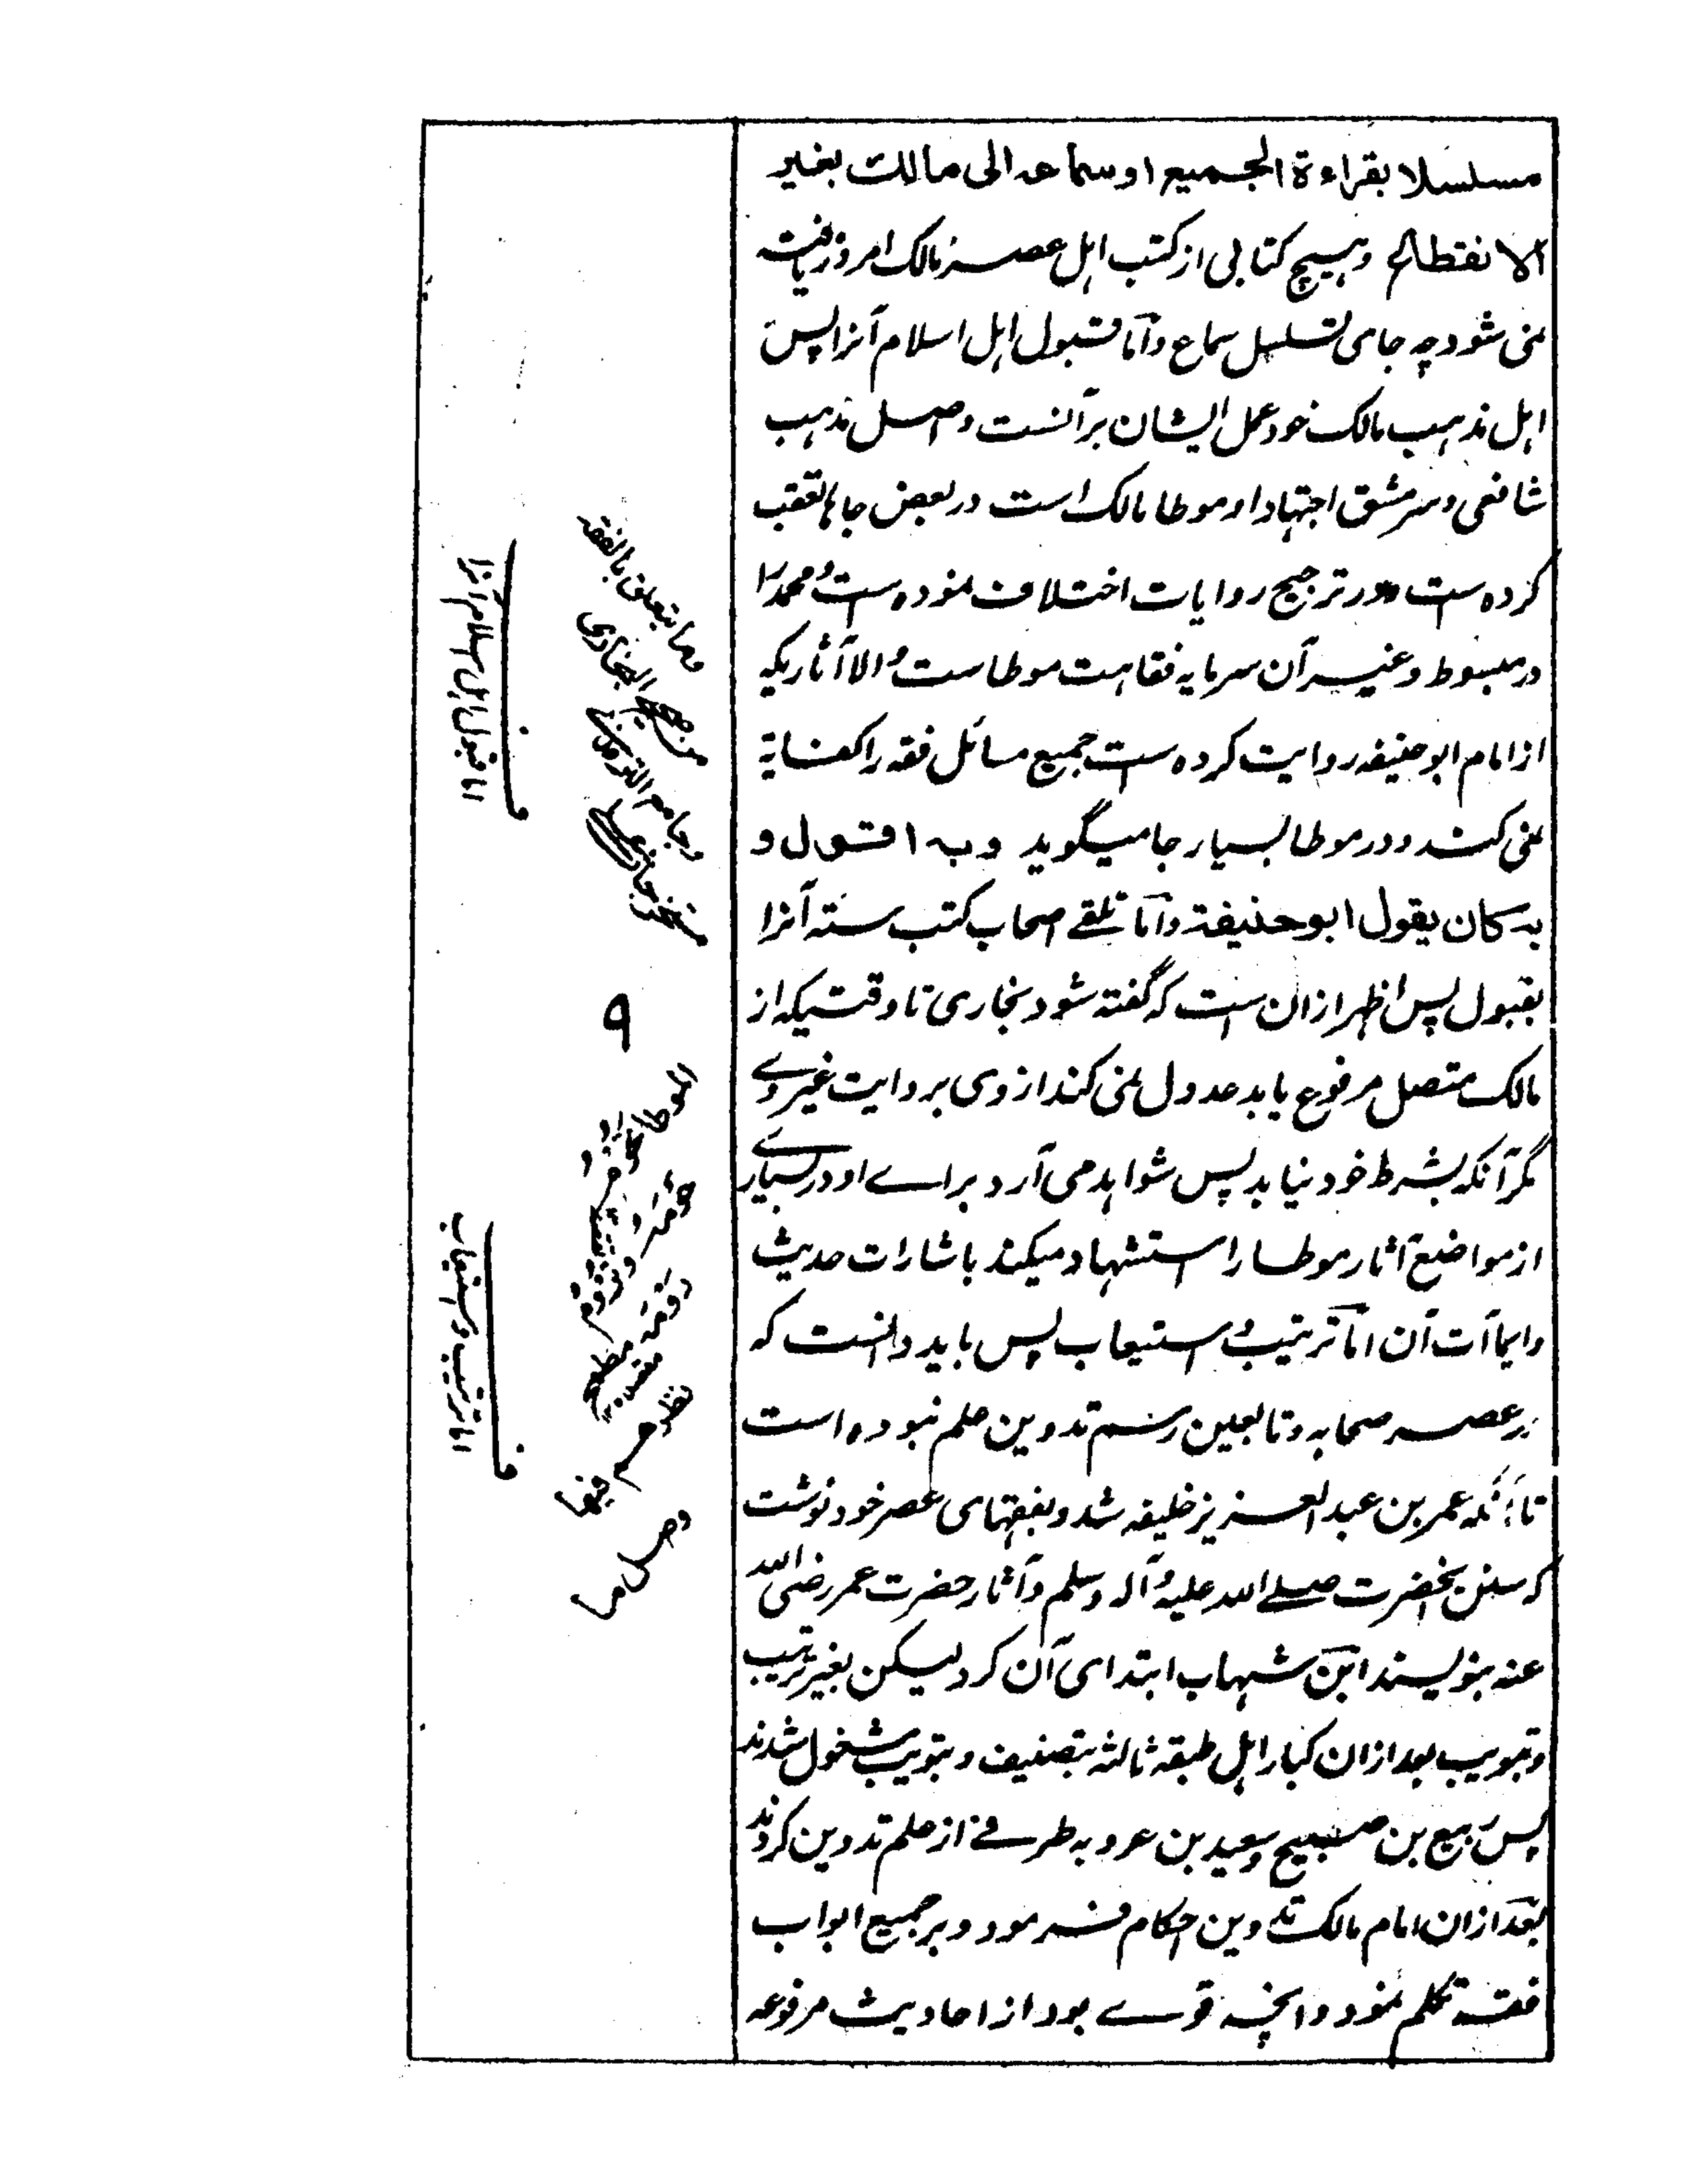 مسلسلا بقراءة الجميع او سماعه الى مالك بغير
الانقطاع وهیچ کتابی از کتب اهل عصر مالک امروز یافته
نمی شود چه جای تسلسل سماع و اما قبول اهل اسلام آنرا پس
اهل مذهب مالک خود عمل ایشان بر آنست و اصل مذهب
شافعی و سر مشق اجتهاد او موطا مالک است در بعض جاها تعقب
کرده است و در ترجیح روایات اختلاف نموده است و محمد را
در مبسوط و غیر آن سرمایه فقاهت موطاست والا آثاریکه
از امام ابو حنیفه روایت کرده است جمیع مسائل فقه را کفایة
نمی کند و در موطا بسیار جا میگوید وبه اقول و
به كان يقول ابو حنيفة و اما تلقے اصحاب کتب سته آنرا
بقبول پس اظهر از ان ست که گفته شود بخاری تا وقتیکه از
مالک متصل مرفوع یابد عدول نمی کند از وی بروایت غیر وے
مگر آنکه بشرط خود نیابد پس شواهد می آرد براے او در بسیارے
از مواضع آثار موطا را استشهاد میکند باشارات حدیث
و ایماآت آن اما ترتیب و استیعاب پس باید دانست که
در عصر صحابه و تابعین رسم تدوین علم نبوده است
تا آنکه عمر بن عبد العزیز خلیفه شد و بفقهای عصر خود نوشت
که سنن آنحضرت صلے الله علیه وآله وسلم و آثار حضرت عمر رضی الله
عنه بنویسند ابن شهاب ابتدای آن کرد لیکن بغیر ترتیب
و تبویب بعد از ان کبار اهل طبقه ثالثه بتصنیف و تبویب مشغول شدند
پس ربیع بن صبیح و سعید بن عروبه طرفے از علم تدوین کردند
بعد از ان امام مالک تدوین احکام فرمود و بر جمیع ابواب
فقه تکلم نمود و آنچه قوے بود از احادیث مرفوعه
وما يتعلق بالفقه
من صحيح البخارى
وجامع الترمذى
٩
الموطا
وصل ما
فـ
اما قبول اهل اسلام آنرا
فـ
اما ترتیب و استیعاب